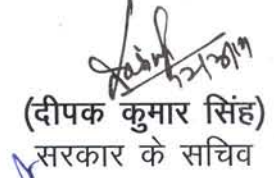 (दीपक कुमार सिंह)
सरकार के सचिव